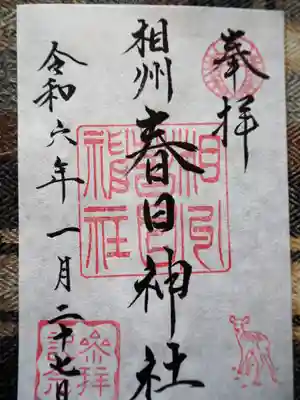 奉拝
相州 春日神社
令和六年一月二十七日
相州
春日
神社
参拝